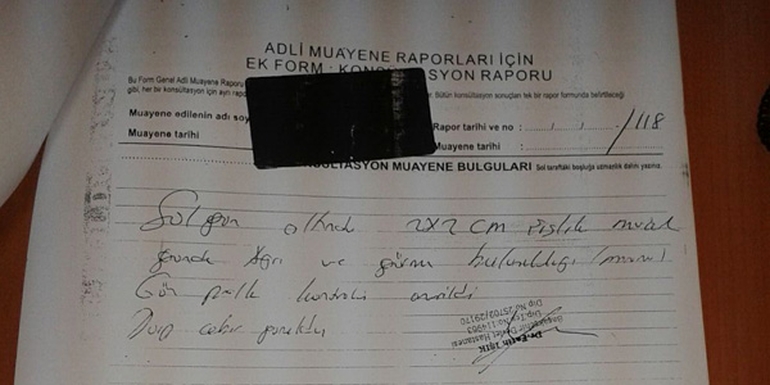 ADLİ MUAYENE RAPORLARI İÇİN
EK FORM : KONSÜLTASYON RAPORU
Bu Form Genel Adli Muayene Raporu
gibi, her konsültasyon için ayrı Bütün konsültasyon sonuçları tek bir rapor formunda belirtileceği
Muayene edilenin adı soy
Rapor tarihi ve no : / / /118
Muayene tarihi
Muayene tarihi :
SULTASYON MUAYENE BULGULARI Sol taraftaki boşluğa uzmanlık dalını yazınız.
Sol göz altında 2x2 cm şişlik
gözünde ağrı ve görme bulanıklığı
Göz kontrolü önerildi
Dr. Fatih IŞIK
Başakşehir Devlet Hastanesi
Dip.Tes.No:114963
Dip No 25703/29170